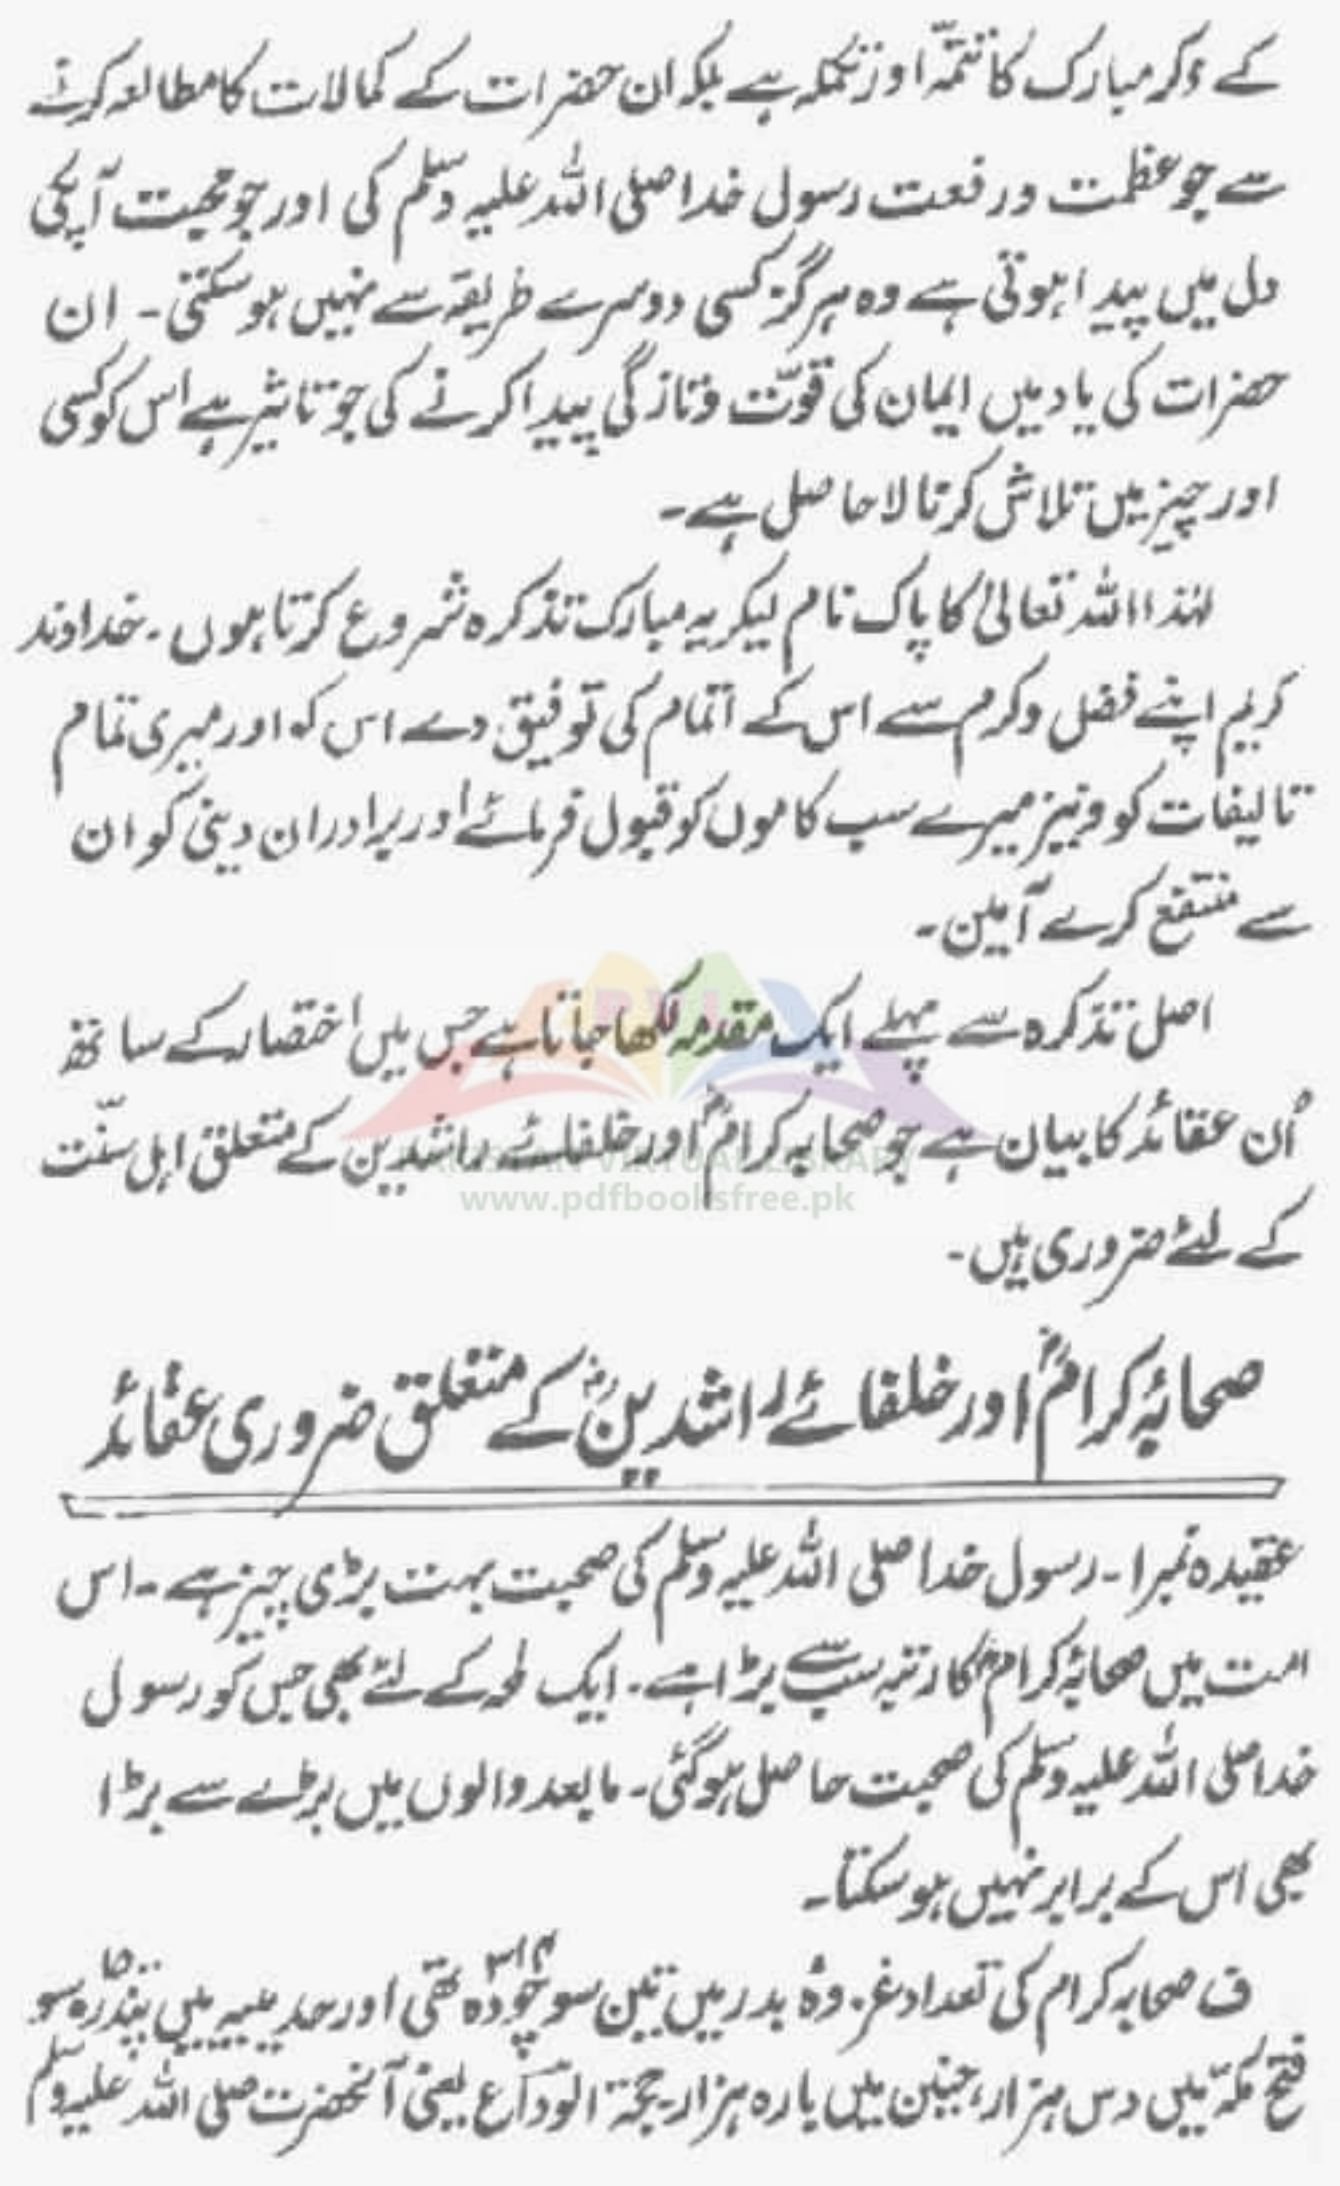 کے ذکر مبارک کا تتمّہ اور تکملہ ہے بلکہ ان حضرات کے کمالات کا مطالعہ کرنے
سے جو عظمت و رفعت رسول خدا صلی اللہ علیہ وسلم کی اور جو محبت آپ کی
دل میں پیدا ہوتی ہے وہ ہرگز کسی دوسرے طریقہ سے نہیں ہو سکتی۔ ان
حضرات کی یاد میں ایمان کی قوّت و تازگی پیدا کرنے کی جو تاثیر ہے اس کو کسی
اور چیز میں تلاش کرنا لا حاصل ہے۔
لہٰذا اللہ تعالیٰ کا پاک نام لیکر یہ مبارک تذکرہ شروع کرتا ہوں۔ خداوند
کریم اپنے فضل و کرم سے اس کے اتمام کی توفیق دے اس کو اور میری تمام
تالیفات کو و نیز میرے سب کاموں کو قبول فرمائے اور برادران دینی کو ان
سے منتفع کرے آمین۔
اصل تذکرہ سے پہلے ایک مقدمہ لکھا جاتا ہے جس میں اختصار کے ساتھ
PVL
اُن عقائد کا بیان ہے جو صحابہ کرامؓ اور خلفائے راشدین کے متعلق اہل سنّت
PAKISTAN VIRTUAL LIBRARY
www.pdfbooksfree.pk
کے لئے ضروری ہیں۔
صحابۂ کرامؓ اور خلفائے راشدینؓ کے متعلق ضروری عقائد
عقیدہ نمبر ۱۔ رسول خدا صلی اللہ علیہ وسلم کی صحبت بہت بڑی چیز ہے۔ اس
امت میں صحابۂ کرامؓ کا رتبہ سب سے بڑا ہے۔ ایک لمحہ کے لئے بھی جس کو رسول
خدا صلی اللہ علیہ وسلم کی صحبت حاصل ہوگئی۔ مابعد والوں میں بڑے سے بڑا
بھی اس کے برابر نہیں ہو سکتا۔
ف صحابہ کرام کی تعداد غزوۂ بدر میں تین سو چودہ ۳۱۴ تھی اور حدیبیہ میں پندرہ سو ۱۵۰۰
فتح مکّہ میں دس ہزار، حنین میں بارہ ہزار، حجۃ الوداع یعنی آنحضرت صلی اللہ علیہ وسلم